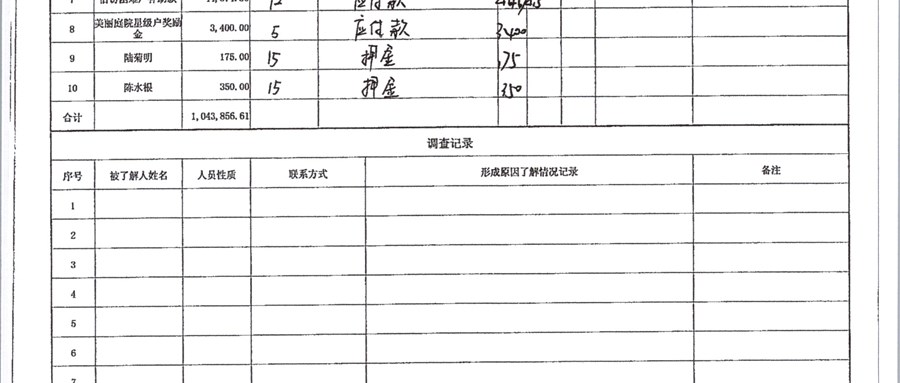 8 美丽庭院星级户奖励金 3,400.00 5 应付款 3400
9 陆菊明 175.00 15 押金 175
10 陈水根 350.00 15 押金 350
合计 1,043,856.61
调查记录
序号 被了解人姓名 人员性质 联系方式 形成原因了解情况记录 备注
1
2
3
4
5
6